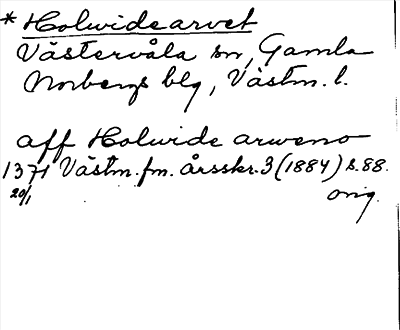 * Holwidearvet
Västervåla sn, Gamla
Norbergs blg, Västm. l.
aff Holwide arweno
1371 Västm. fm. årsskr. 3 (1884) s. 88.
20/1 orig.